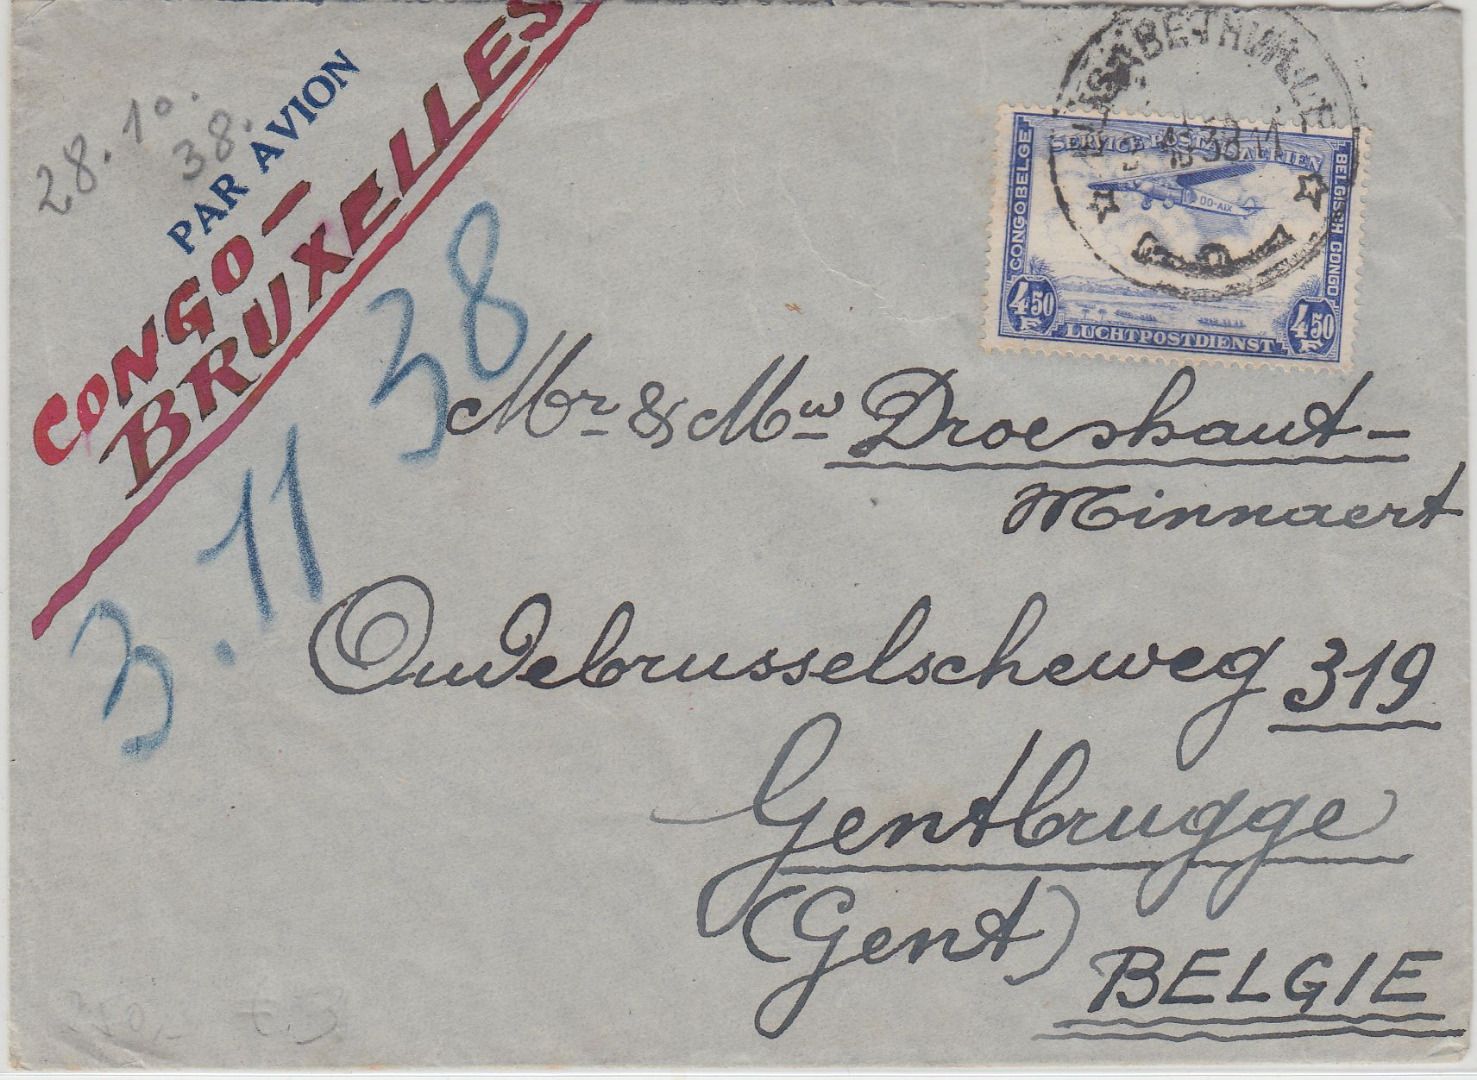 28.10.
38.
PAR AVION
CONGO-
BRUXELLES
3.11 38
ELISABETHVILLE
SERVICE POSTAL AÉRIEN
CONGO BELGE
BELGISCH CONGO
OO-AIX
4.50 F
4.50 F
LUCHTPOSTDIENST
Mr & Mw Droeshaut-
Minnaert
Oudebrusselscheweg 319
Gentbrugge
(Gent)
BELGIE